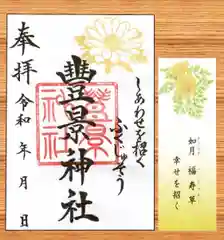 しあわせを招く
ふくじゅそう
豊景神社
豊景
神社
奉拝
令和 年 月 日
如月 福寿草
幸せを招く